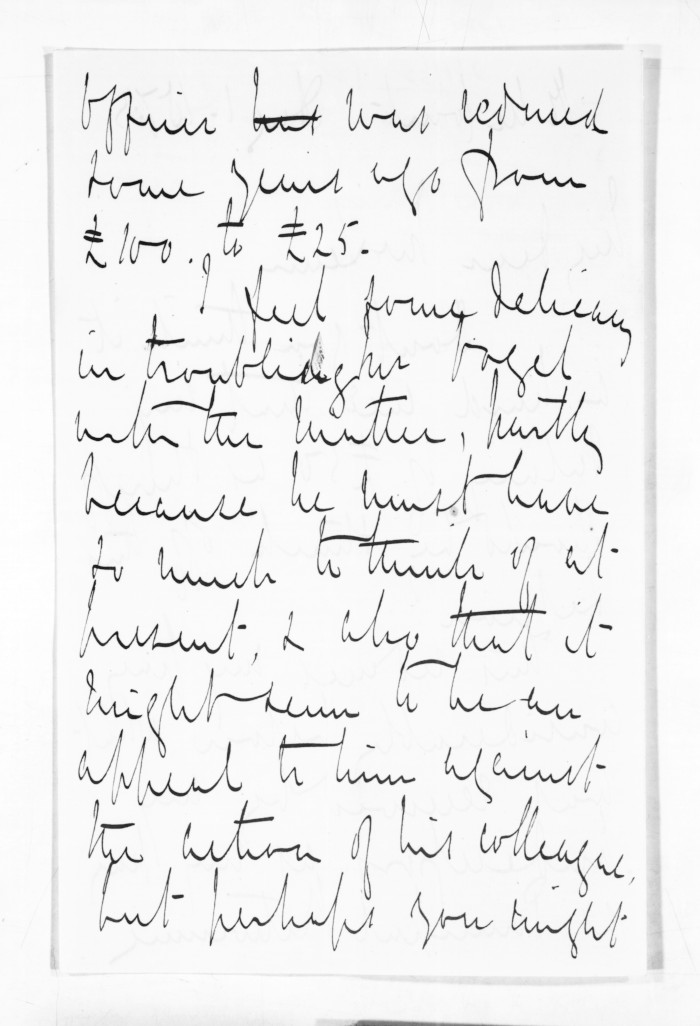 officer but was reduced
some years ago from
£100. to £25.
I feel some delicacy
in troubling Mr Paget
with the matter, partly
because he must have
so much to think of at
present, & also that it
might seem to be an
appeal to him against
the action of his colleague,
but perhaps you might